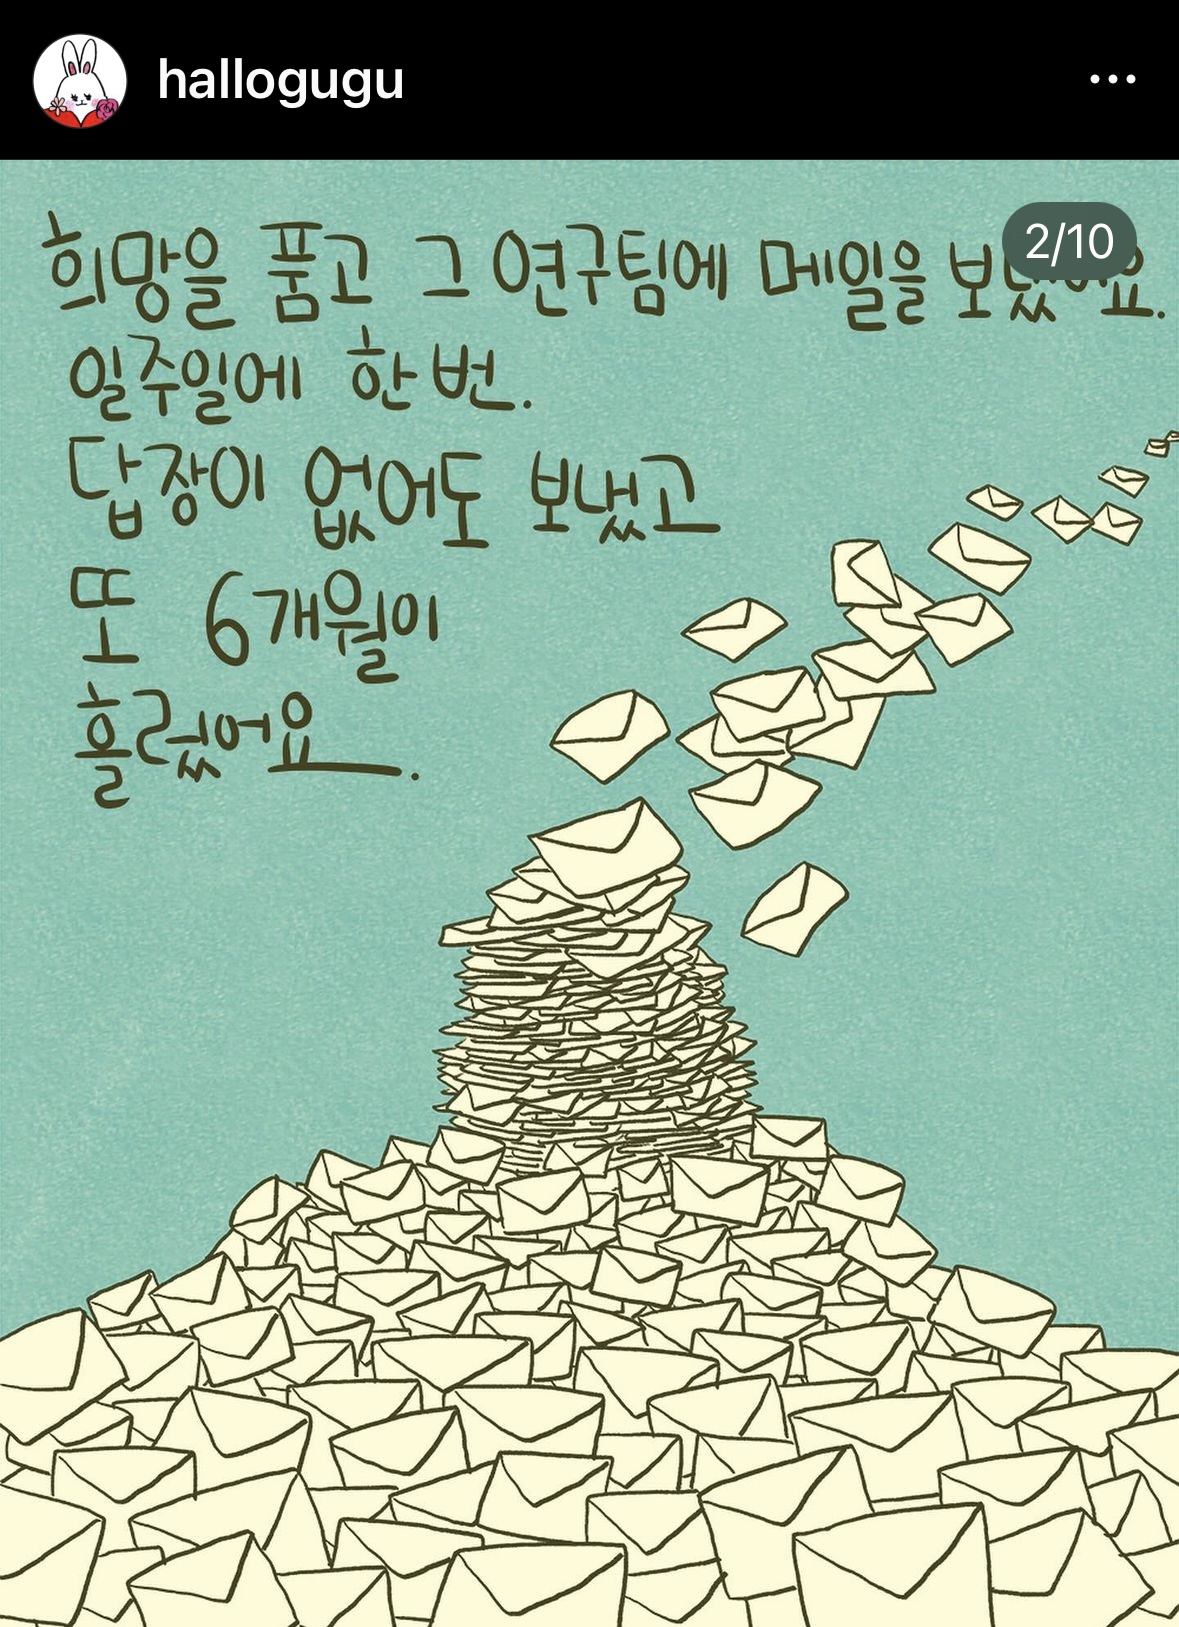 hallogugu
2/10
희망을 품고 그 연구팀에 메일을 보냈어요.
일주일에 한 번.
답장이 없어도 보냈고
또 6개월이
흘렀어요.